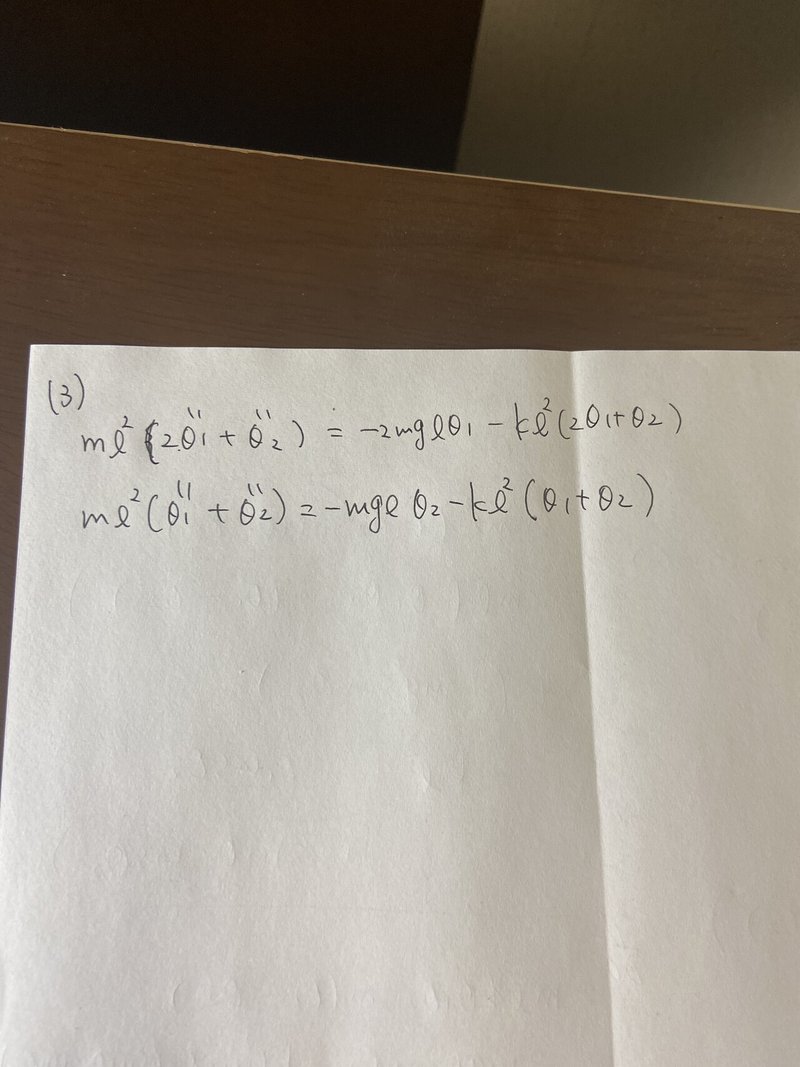 (3)
mℓ²(2θ̈₁ + θ̈₂) = -2mgℓθ₁ - kℓ²(2θ₁+θ₂)
mℓ²(θ̈₁ + θ̈₂) = -mgℓθ₂ - kℓ²(θ₁+θ₂)